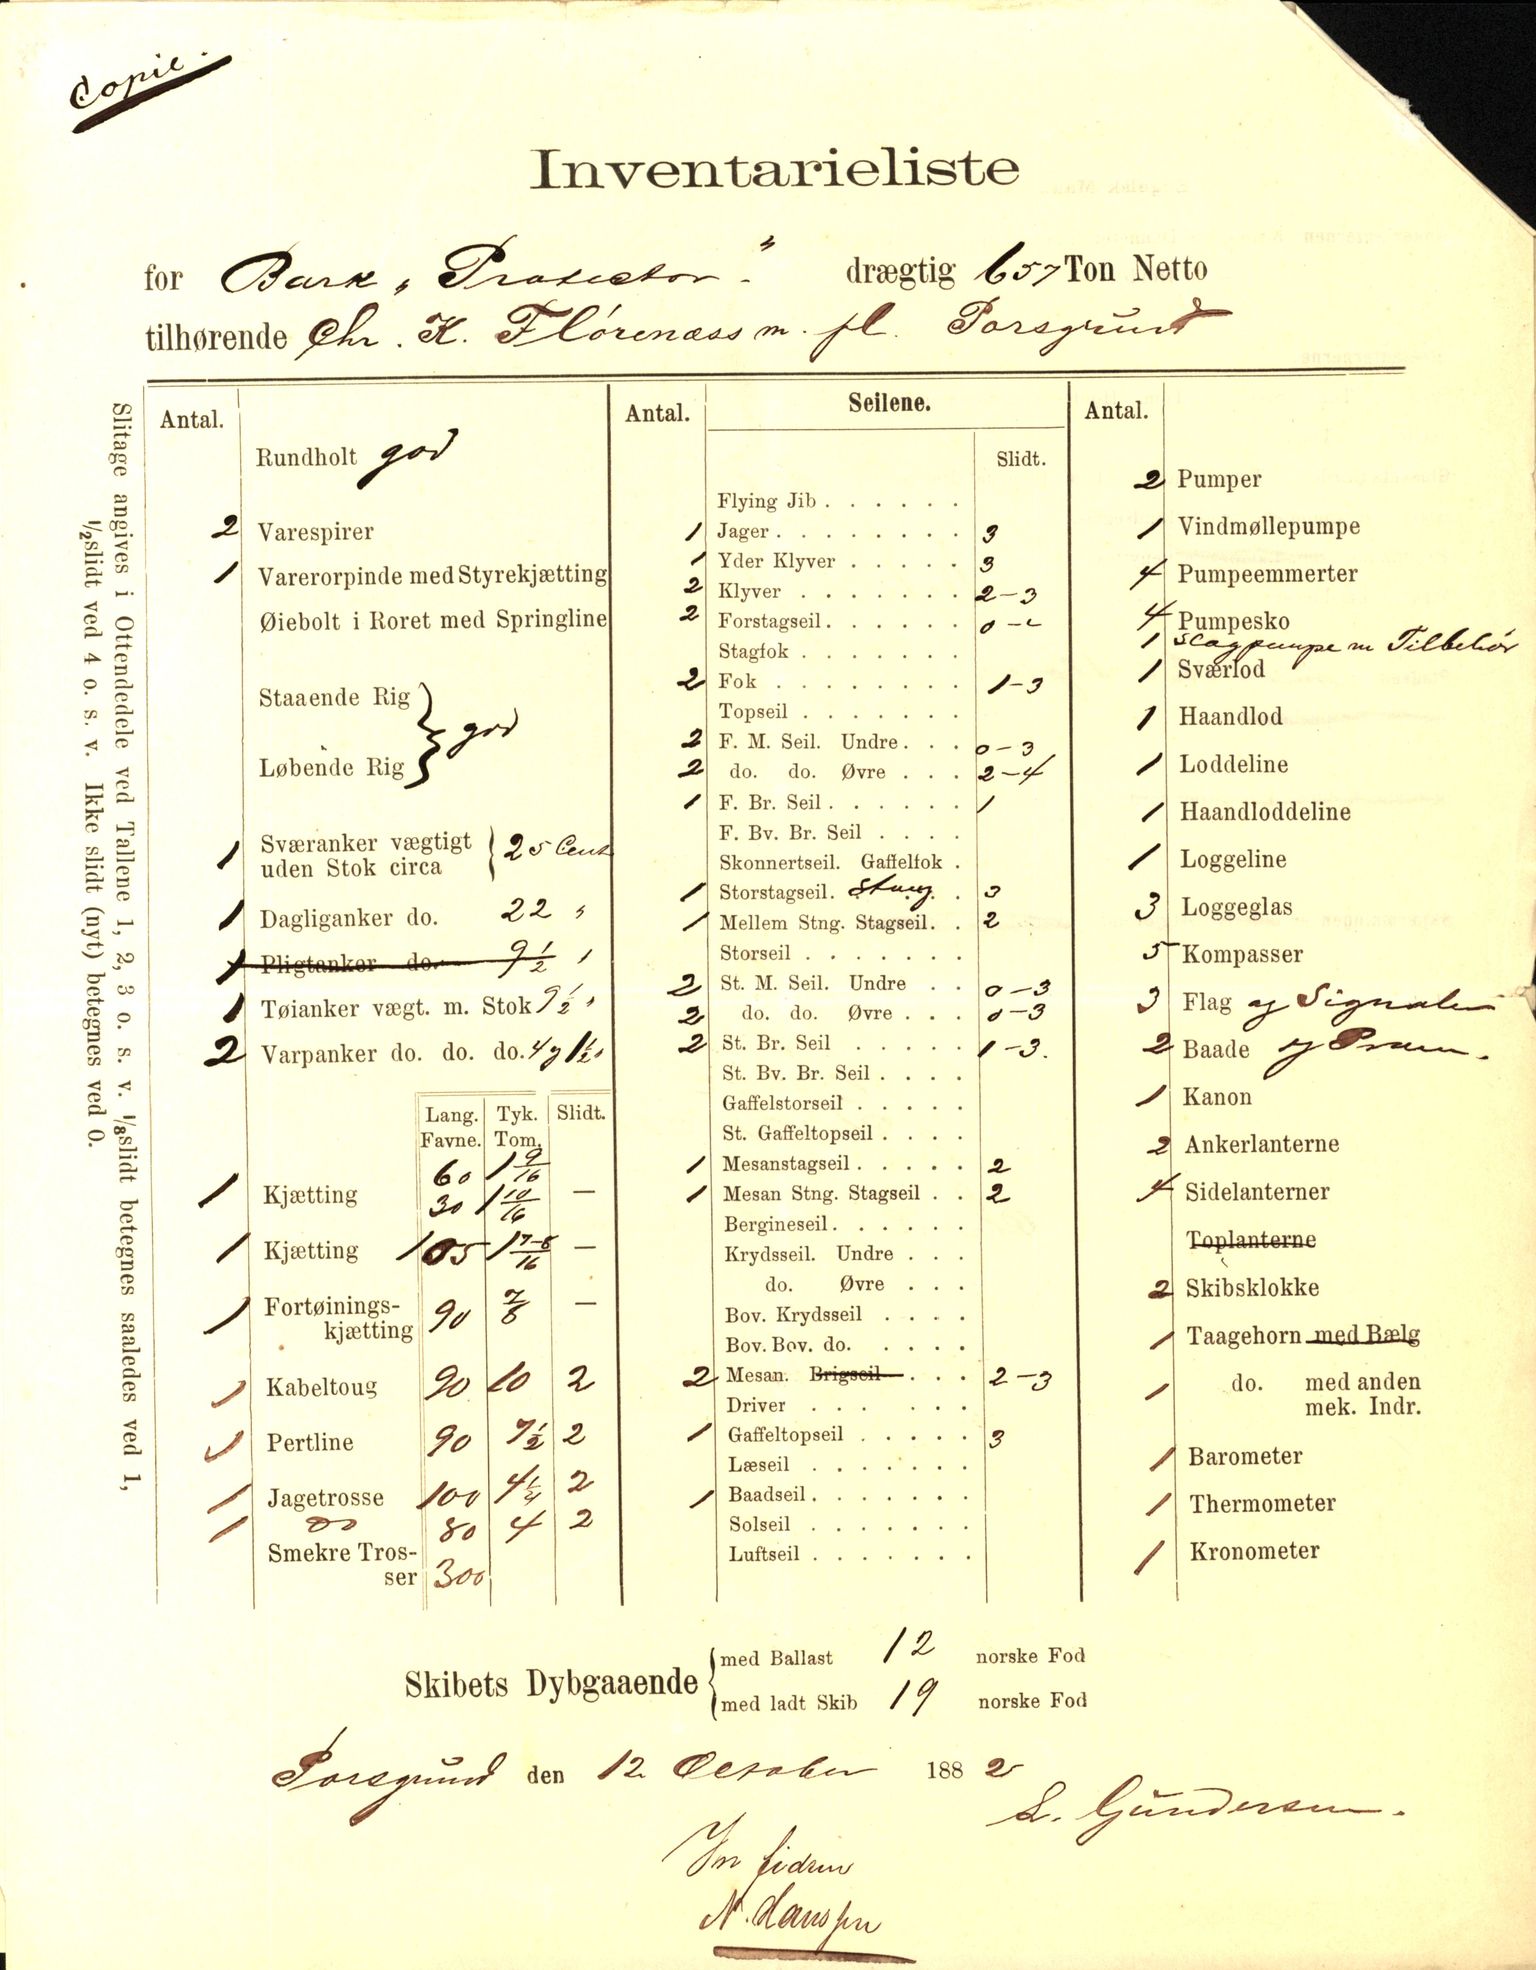 Copie.
Inventarieliste
for Bark „Protector." drægtig 657 Ton Netto
tilhørende Chr. K. Flórenæss m. fl. Porsgrund
Slitage angives i Ottendedele ved Tallene 1, 2, 3 o. s. v. 1/8 slidt betegnes saaledes ved 1,
1/2 slidt ved 4 o. s. v. Ikke slidt (nyt) betegnes ved 0.
Antal.
Rundholt god
2 Varespirer
1 Varerorpinde med Styrekjætting
Øiebolt i Roret med Springline
Staaende Rig
god
Løbende Rig
1 Sværanker vægtigt
uden Stok circa 25 Cent
1 Dagliganker do. 22 "
1 Pligtanker do. 9 1/2 "
1 Tøianker vægt. m. Stok 9 1/2 "
2 Varpanker do. do. do. 4 og 1 1/2 "
Lang. Tyk. Slidt.
Favne. Tom.
60 1 9/16
1 Kjætting 30 1 10/16 —
1 Kjætting 105 1 7-8/16 —
1 Fortøinings-
kjætting 90 7/8 —
1 Kabeltoug 90 10 2
1 Pertline 90 7 1/2 2
1 Jagetrosse 100 4 1/4 2
1 do 80 4 2
Smekre Tros-
ser 300
Antal. Seilene.
Slidt.
Flying Jib . . . . . .
1 Jager . . . . . . . . 3
1 Yder Klyver . . . . . 3
2 Klyver . . . . . . . 2-3
2 Forstagseil . . . . . . 0-2
Stagfok . . . . . . .
2 Fok . . . . . . . . 1-3
Topseil . . . . . . .
2 F. M. Seil. Undre . . . 0-3
2 do. do. Øvre . . . 2-4
1 F. Br. Seil . . . . . . 1
F. Bv. Br. Seil . . . .
Skonnertseil. Gaffelfok .
1 Storstagseil. Stang. . 3
1 Mellem Stng. Stagseil. . 2
Storseil . . . . . . .
2 St. M. Seil. Undre . . 0-3
2 do. do. Øvre . . . 0-3
2 St. Br. Seil . . . . . 1-3.
St. Bv. Br. Seil . . . .
Gaffelstorseil . . . . .
St. Gaffeltopseil . . . .
1 Mesanstagseil . . . . . 2
1 Mesan Stng. Stagseil . . 2
Bergineseil . . . . . .
Krydsseil. Undre . . .
do. Øvre . . .
Bov. Krydsseil . . . .
Bov. Bov. do. . . . .
2 Mesan. Brigseil . . . 2-3
Driver . . . . . .
1 Gaffeltopseil . . . . . 3
Læseil . . . . . . .
1 Baadseil . . . . . . .
Solseil . . . . . . .
Luftseil . . . . . . .
Antal.
2 Pumper
1 Vindmøllepumpe
4 Pumpeemmerter
4 Pumpesko
1 Slagpumpe m Tilbehör
1 Sværlod
1 Haandlod
1 Loddeline
1 Haandloddeline
1 Loggeline
3 Loggeglas
5 Kompasser
3 Flag og Signaler
2 Baade og Pram.
1 Kanon
2 Ankerlanterne
4 Sidelanterner
Toplanterne
2 Skibsklokke
1 Taagehorn med Bælg
1 do. med anden
mek. Indr.
1 Barometer
1 Thermometer
1 Kronometer
Skibets Dybgaaende
med Ballast 12 norske Fod
med ladt Skib 19 norske Fod
Porsgrund den 12 October 1882
L. Gundersen.
In fidem
N. Hanssen